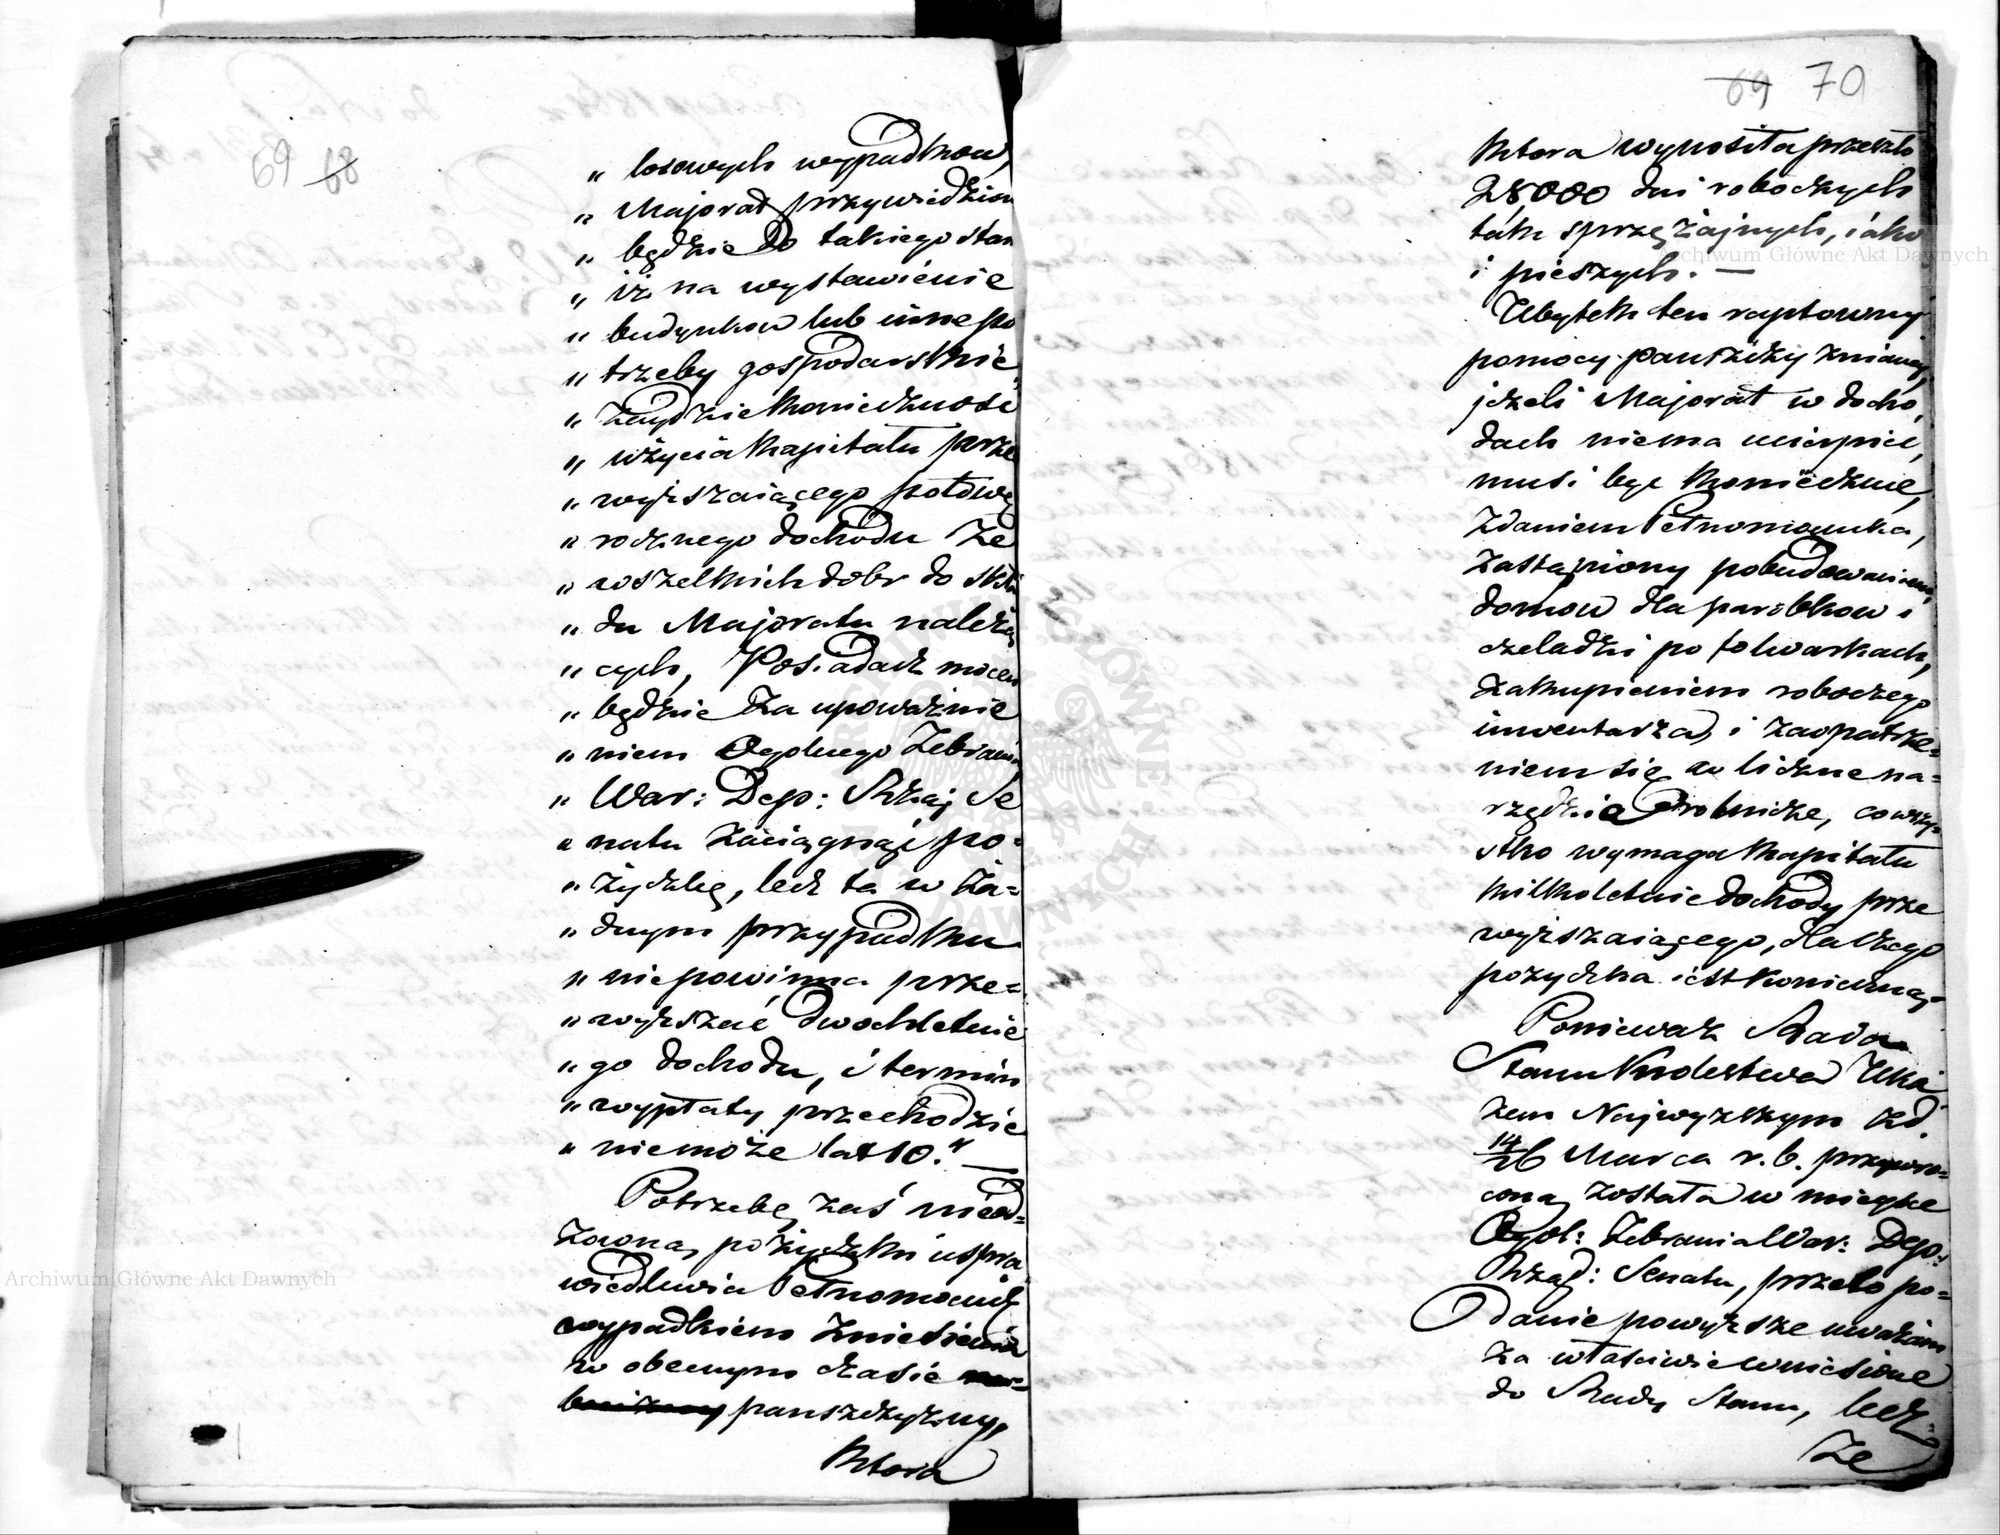 69 68
„ losowych wypadkow,
„ Majorat przywiedzion
„ będzie do takiego stan
„ iż na wystawienie
„ budynkow lub inne po
„ trzeby gospodarskie
„ zaydzie konieczność
„ użycia kapitału prze
„ wyższaiącego połowę
„ rocznego dochodu ze
„ wszelkich dobr do skła
„ du Majoratu należą
„ cych, Posiadacz mocen
„ będzie za upoważnie
„ niem Ogolnego Zebrania
„ War: Dep: Rząd Se
„ natu zaciągnąć po=
„ życzkę, lecz ta w ża=
„ dnym przypadku
„ niepowinna prze=
„ wyższać dwochletnie
„ go dochodu, i termin
„ wypłaty przechodzić
„ niemoże lat 10." —
Potrzebę zaś nieod=
zowną pożyczki uspra
wiedliwia Pełnomocnik
wypadkiem zniesienia
w obecnym czasie
pańszczyzny,
ktora
69 70
ktora wynosiła przeszło
28,000 dni roboczych
tak sprzężajnych, iako
i pieszych. —
Ubytek ten raptowny
pomocy pańszczyznianey,
jeżeli Majorat w docho,
dach niema ucierpieć,
musi być koniecznie,
zdaniem Pełnomocnika,
zastąpiony pobudowaniem,
domow dla parobkow i
czeladzi po folwarkach,
zakupieniem roboczego
inwentarza, i zaopatrze=
niem się w liczne na=
rzędzia rolnicze, co wszy=
stko wymaga kapitału
kilkoletnie dochody prze
wyższaiącego, dla czego
pożyczka iest konieczną.
Ponieważ Rada
Stanu Krolestwa Uka
zem Naywyższym z d.
14/26 Marca r. b. przywro=
coną została w mieysce
Ogol: Zebrania War: Dep:
Rząd: Senatu, przeto po=
danie powyższe uważam
za właściwie wniesione
do Rady Stanu, lecz
że
Archiwum Główne Akt Dawnych
Archiwum Główne Akt Dawnych
ARCHIWUM GŁÓWNE AKT DAWNYCH